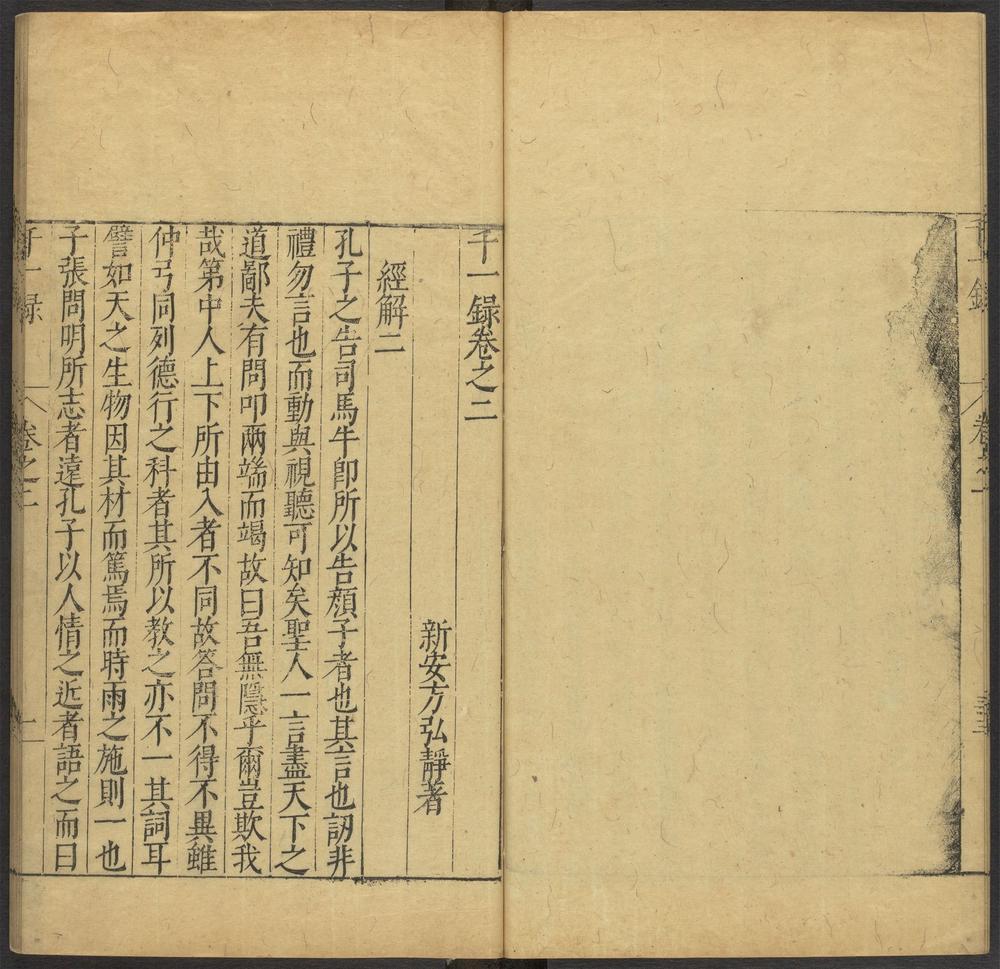 千一録
卷之一
千一録卷之二
新安方弘靜著
經解二
孔子之告司馬牛卽所以告顏子者也其言也訒非
禮勿言也而動與視聽可知矣聖人一言盡天下之
道鄙夫有問叩兩端而竭故曰吾無隱乎爾豈欺我
哉第中人上下所由入者不同故答問不得不異雖
仲弓同列德行之科者其所以教之亦不一其詞耳
譬如天之生物因其材而篤焉而時雨之施則一也
子張問明所志者遠孔子以人情之近者語之而曰
千一録
卷之二
一